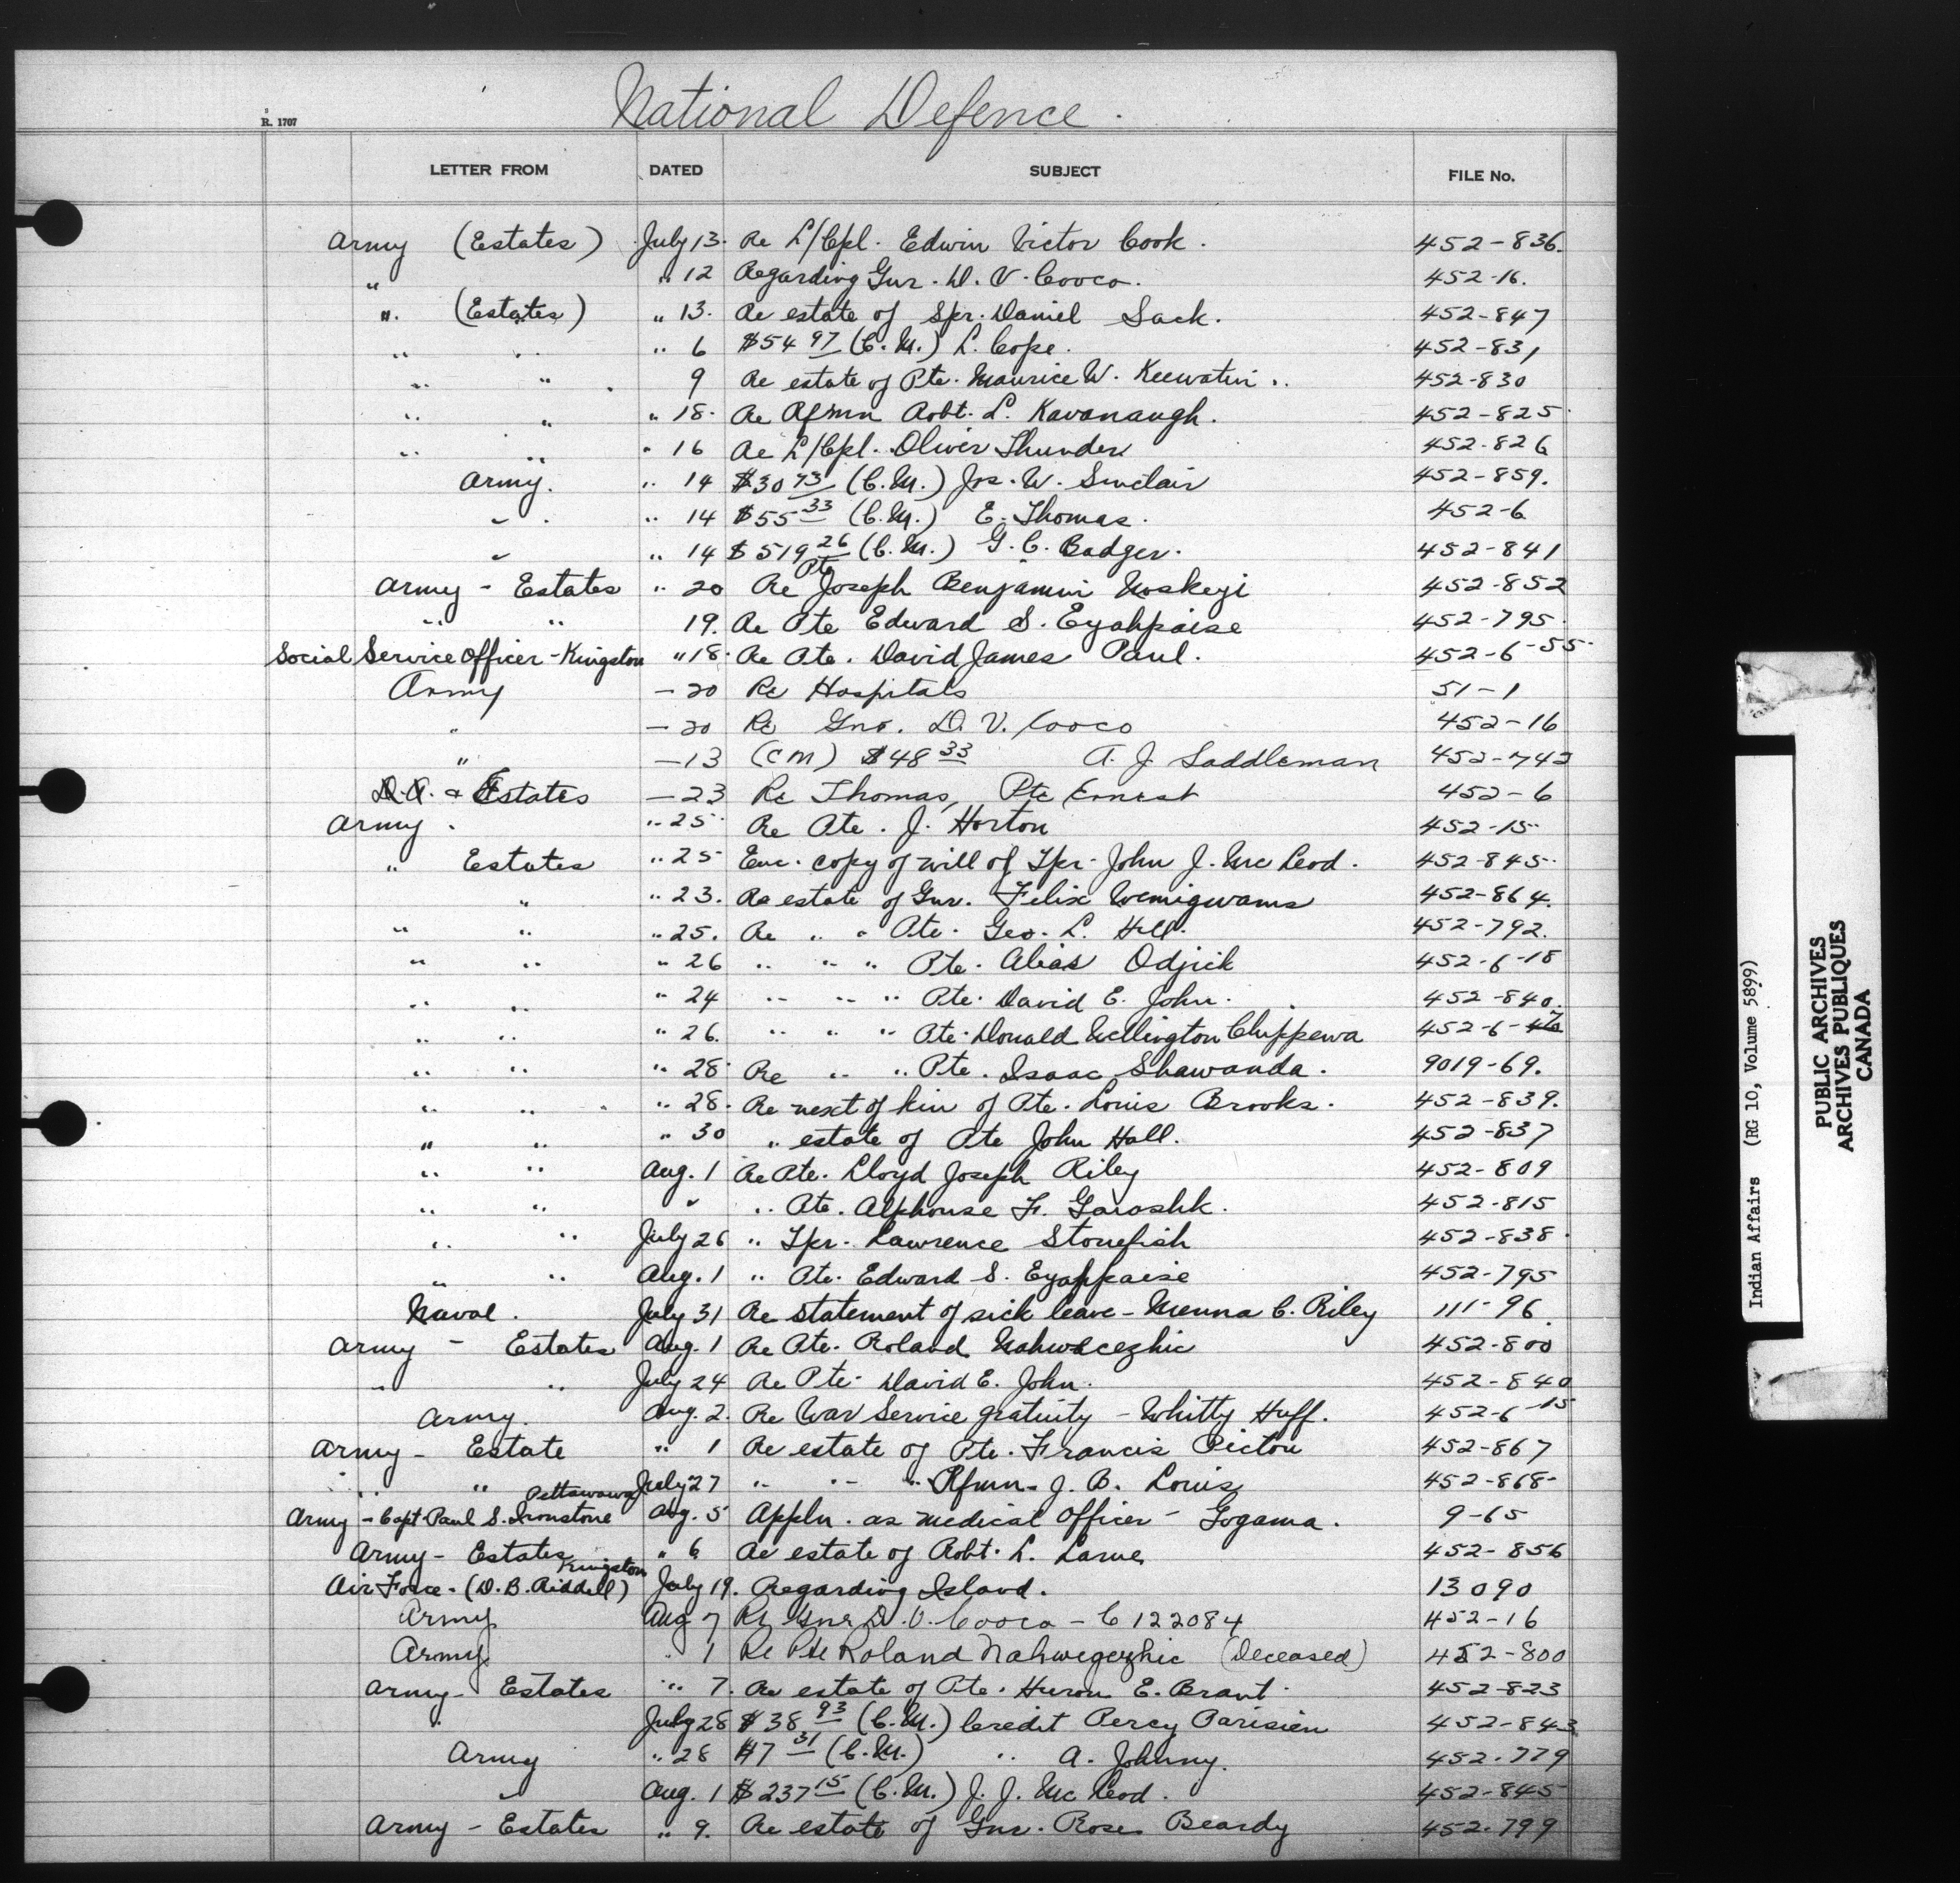 National Defence.
R. 1707
LETTER FROM DATED SUBJECT FILE No.
Army (Estates) July 13. Re L/Cpl. Edwin Victor Cook. 452-836.
" " 12 Regarding Gnr. D. V. Cooco. 452-16.
". (Estates) " 13. Re estate of Spr. Daniel Sack. 452-847
" " " 6 $54 97 (C.M.) L. Cope. 452-831
" " 9 Re estate of Pte. Maurice W. Keewatin. 452-830
" " " 18. Re Rfmn Robt. L. Kavanaugh. 452-825
" " " 16 Re L/Cpl. Oliver Thunder 452-826
Army. " 14 $30 93 (C.M.) Jos. W. Sinclair 452-859.
" " 14 $55 33 (C.M.) E. Thomas. 452-6
" " 14 $519 26 (C.M.) G. C. Badger. 452-841
Army - Estates " 20 Re Pte Joseph Benjamin Noskeyi 452-852
" " 19. Re Pte Edward S. Eyahpaise 452-795
Social Service Officer - Kingston " 18. Re Pte. David James Paul. 452-6-55
Army - 20 Re Hospitals 51-1
" - 20 Re Gnr. D. V. Cooco 452-16
" - 13 (CM) $48 33 A. J. Saddleman 452-742
D.A. & Estates - 23 Re Thomas, Pte Ernest 452-6
Army. " 25 Re Pte. J. Horton 452-15
" Estates " 25 Enc. copy of will of Tpr. John J. McLeod. 452-845
" " 23. Re estate of Gnr. Felix Wemigwans 452-864.
" " " 25. Re " " Pte. Geo. L. Hill. 452-792.
" " " 26 " " " Pte. Alias Odjick 452-6-18
" " " 24 " " " Pte. David E. John. 452-840.
" " " 26. " " " Pte. Donald Wellington Chippewa 452-6-
" " " 28 Re " " Pte. Isaac Shawanda. 9019-69.
" " " 28. Re next of kin of Pte. Louis Brooks. 452-839.
" " " 30 " estate of Pte John Hall. 452-837
" " Aug. 1 Re Pte. Lloyd Joseph Riley 452-809
" " " " Pte. Alphonse F. 452-815
" " July 26 " Tpr. Lawrence Stonefish 452-838
" " Aug. 1 " Pte. Edward S. Eyahpaise 452-795
Naval. July 31 Re statement of sick leave - C. Riley 111-96
Army - Estates Aug. 1 Re Pte. Roland 452-800
" " July 24 Re Pte. David E. John. 452-840
Army. Aug. 2. Re War Service gratuity - Whitty Huff. 452-6-15
Army - Estate " 1 Re estate of Pte. Francis Picton 452-867
" " July 27 " " " Rfmn. J. B. Louis 452-868
Army - Capt. Paul S. Ironstone Pettawawa Aug. 5 Appln. as medical officer - Gogama. 9-65
Army - Estates " 6 Re estate of Robt. L. Larue 452-856
Air Force - (D. B. Riddell) Kingston July 19. Regarding Island. 13090
Army Aug 7 Re Gnr D. V. Cooco - C 122084 452-16
Army " 1 Re Pte Roland Nahwegezhic (Deceased) 452-800
Army - Estates " 7. Re estate of Pte. Huron E. Brant. 452-823
" July 28 $38 93 (C.M.) Credit Percy Parisien 452-843
Army " 28 $7 31 (C.M.) " A. Johnny. 452-779
" Aug. 1 $237 15 (C.M.) J. J. McLeod. 452-845
Army - Estates " 9. Re estate of Gnr. Rose Beardy 452-799
Indian Affairs (RG 10, Volume 5899)
PUBLIC ARCHIVES
ARCHIVES PUBLIQUES
CANADA